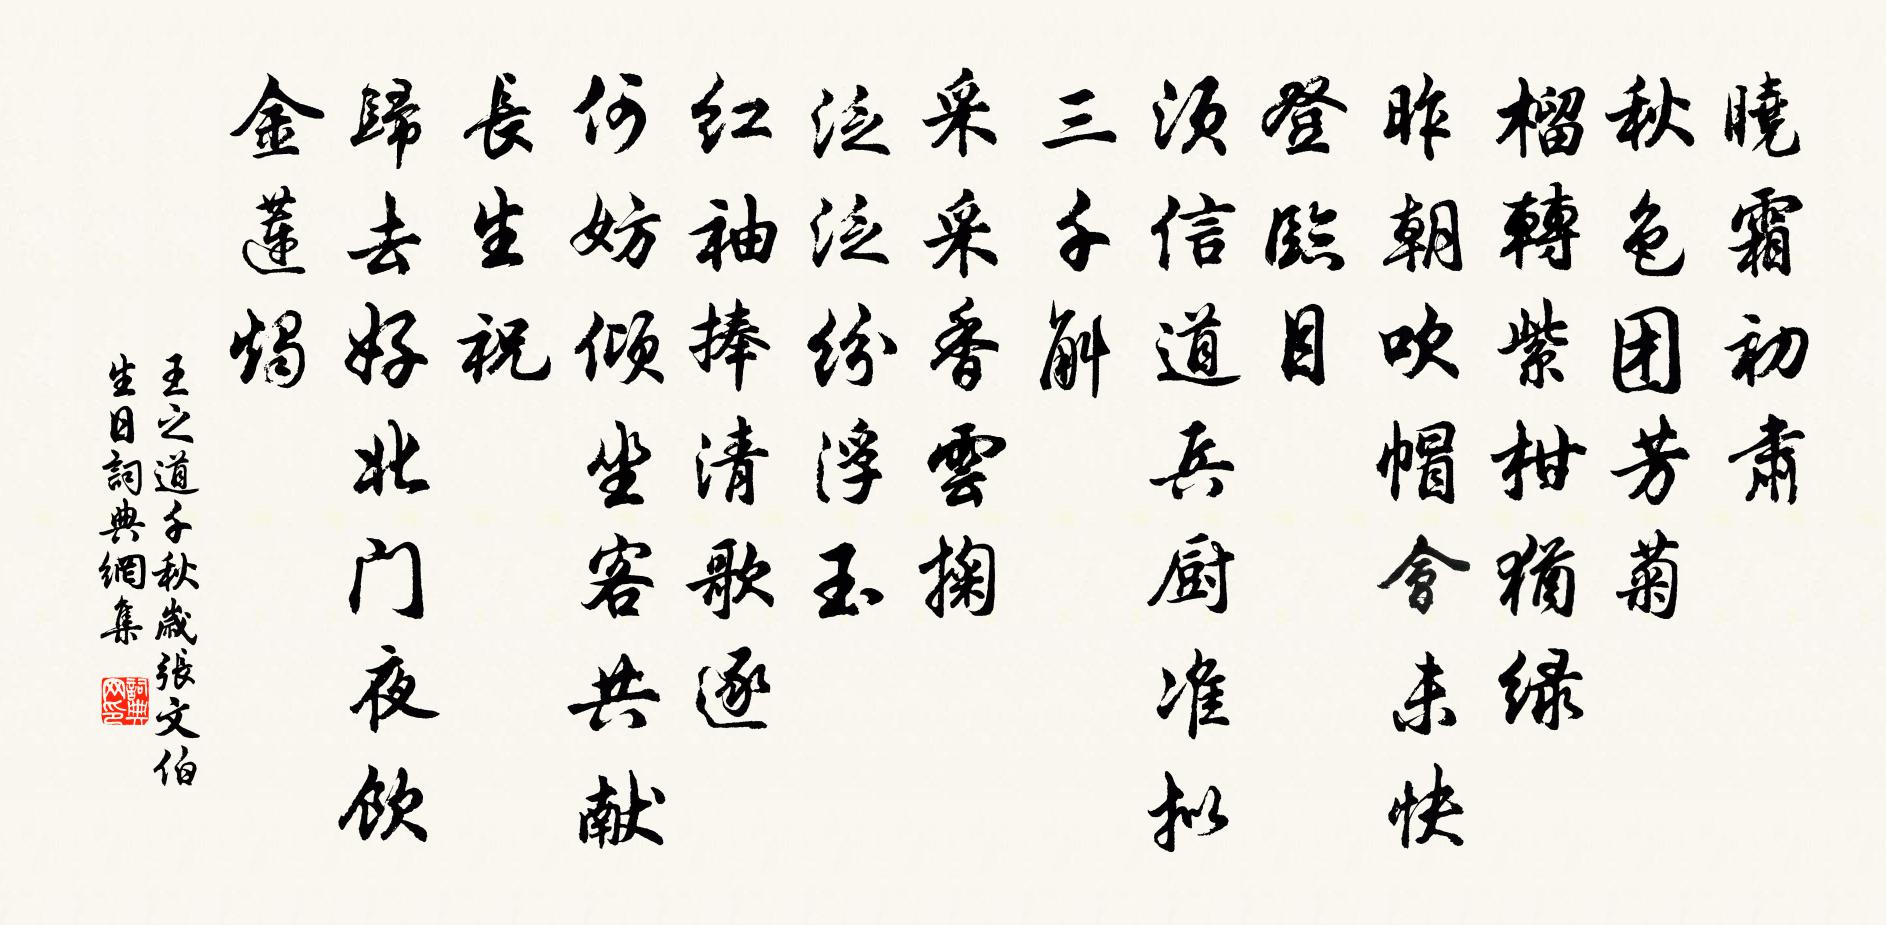 曉霜初肅
秋色团芳菊
榴轉紫柑猶绿
昨朝吹帽會未快
登臨目
须信道兵厨准拟
三千斛
采采香雲掬
泛泛纷浮玉
红袖捧清歌逐
何妨倾坐客共献
長生祝
歸去好北门夜飲
金蓮燭
王之道千秋歲張文伯
生日詞典網集
詞典
网印